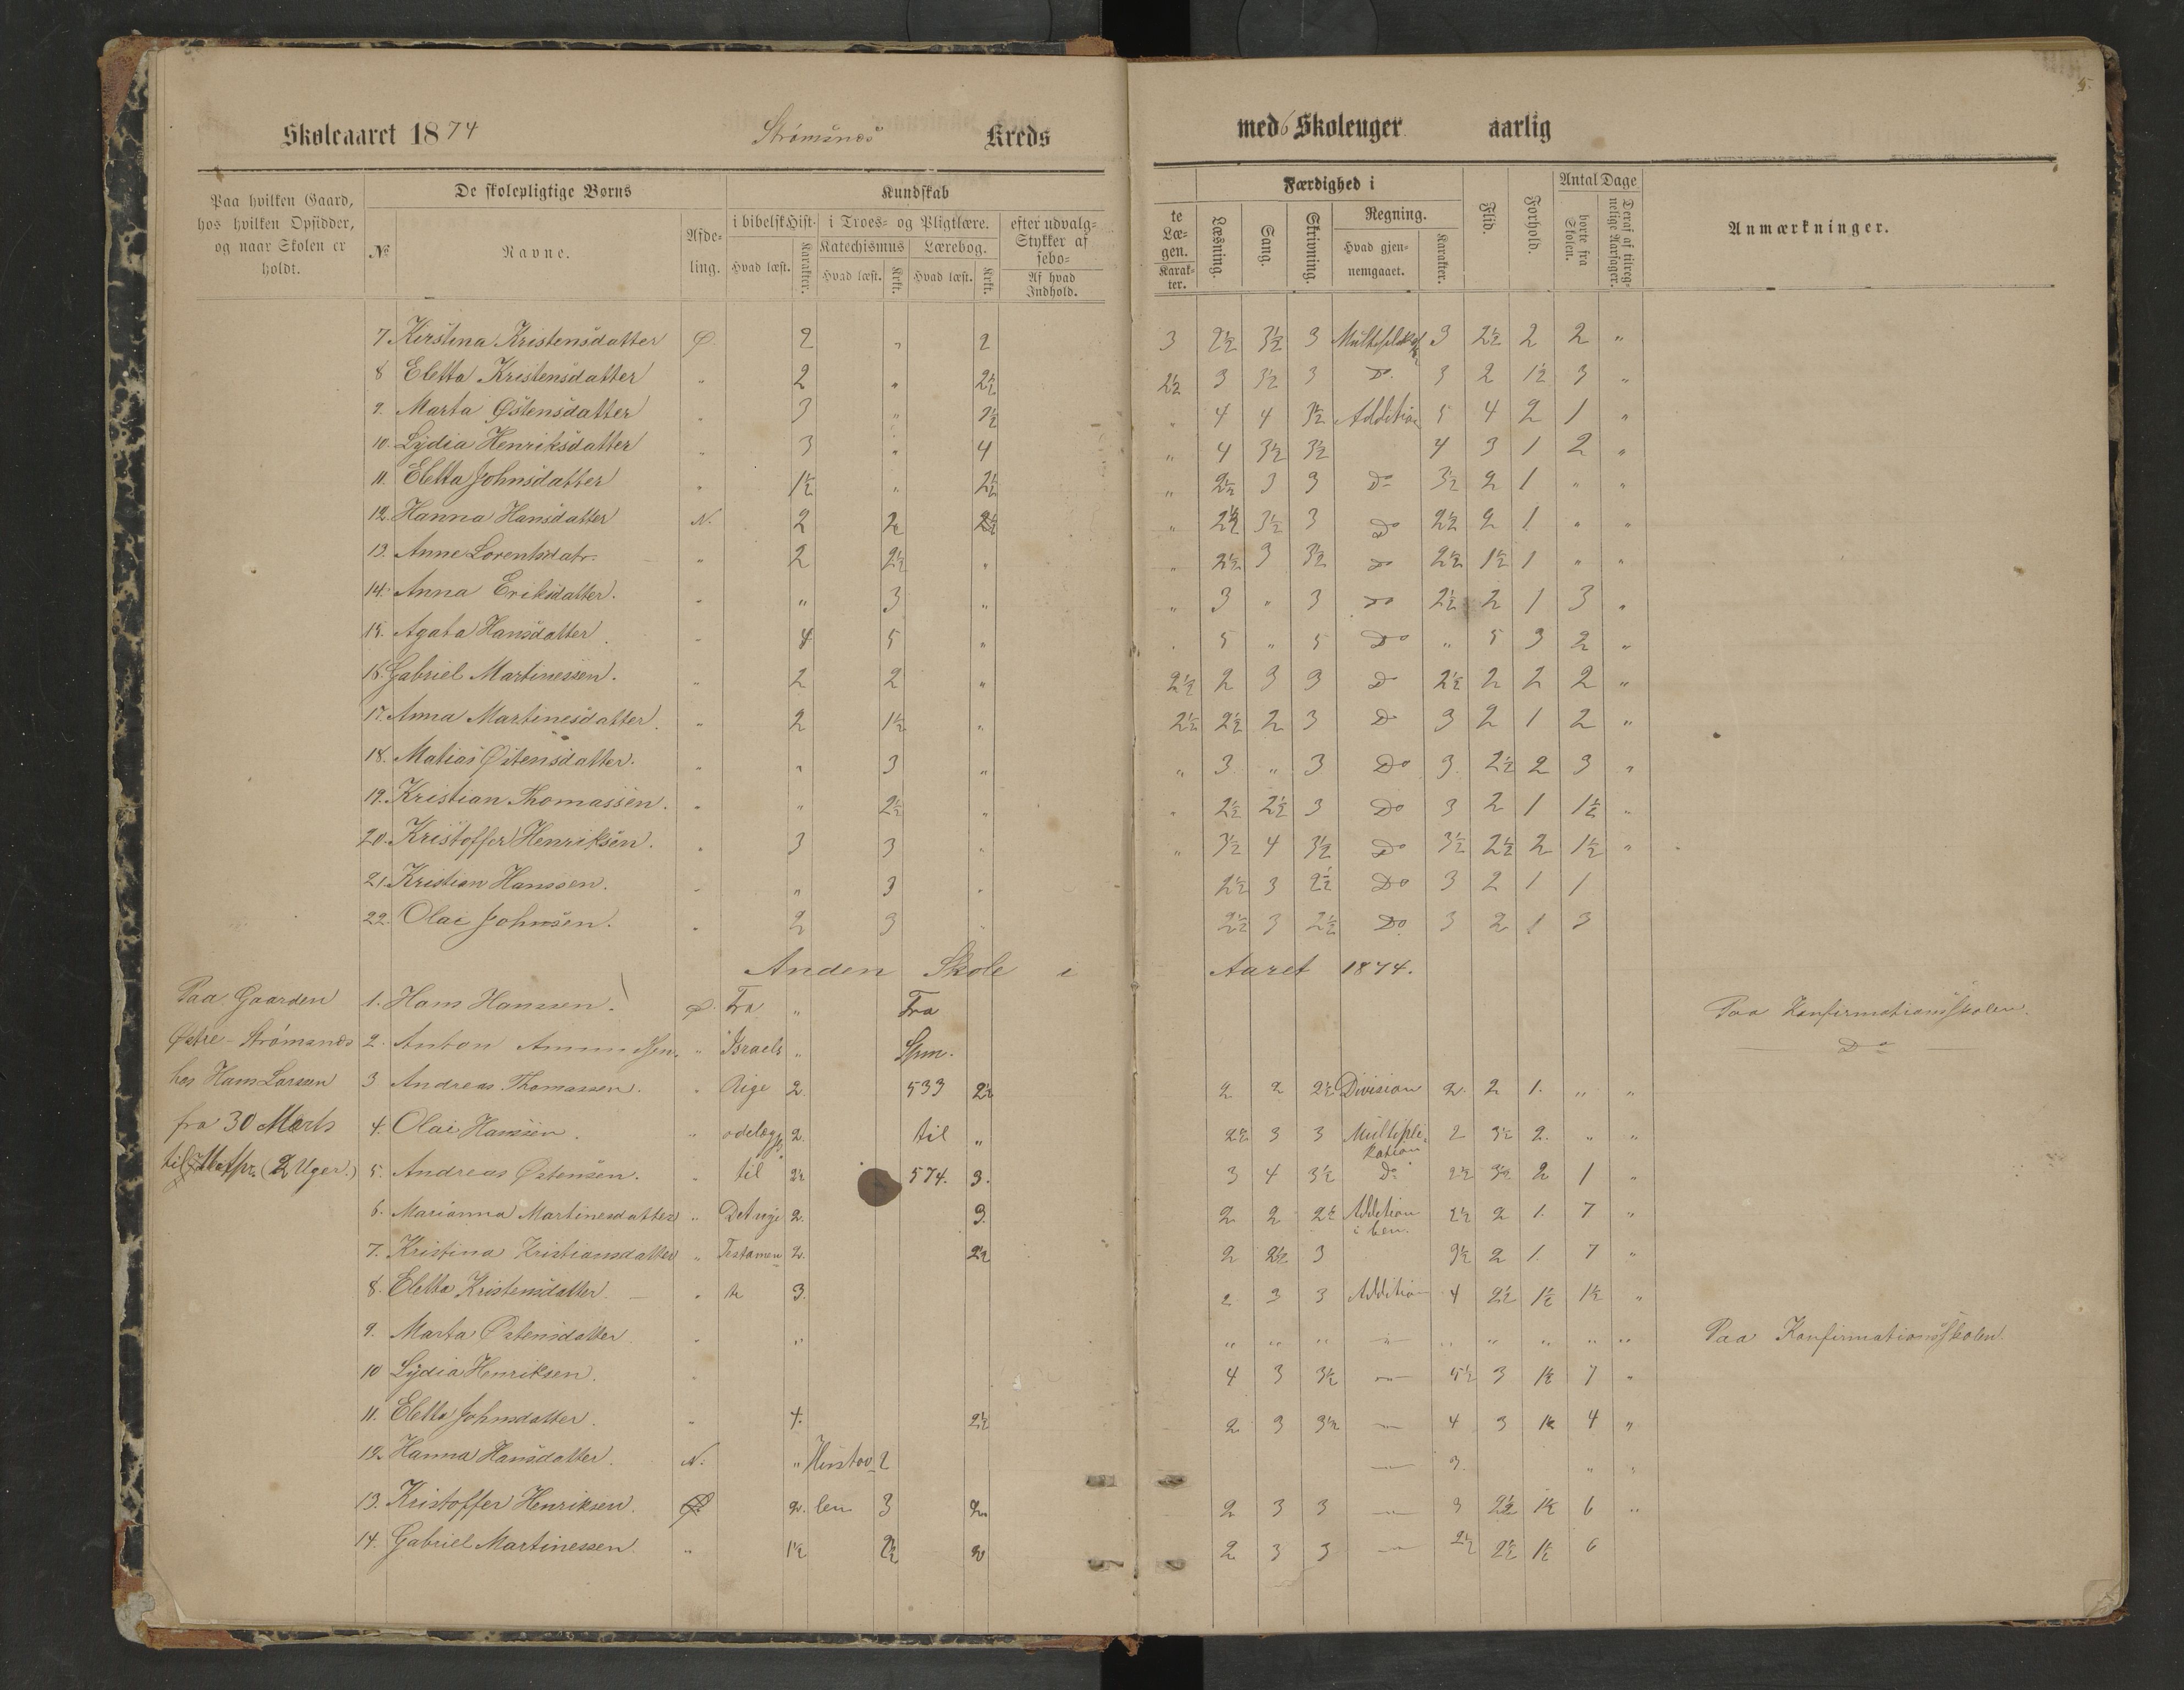 Skoleaaret 1874 Strømsnæs Kreds med 6 Skoleuger aarlig
5.
Paa hvilken Gaard, hos hvilken Opsidder, og naar Skolen er holdt.
De skolepligtige Børns
№ Navne. Afdeling.
Kundskab
i bibelsk Hist. i Troes- og Pligtlære. efter udvalg-
Katechismus Lærebog. Stykker af sebo=
Hvad læst. Karakter. Hvad læst. Krkt. Hvad læst. Krkt. Af hvad Indhold.
te Læ- gen. Karak- ter.
Færdighed i
Læsning. Sang. Skrivning. Regning. Hvad gjennemgaaet. Karakter.
Flid. Forhold. Antal Dage borte fra Skolen. Deraf af tilregnelige Aarsager.
Anmærkninger.
7 Kirstina Kristensdatter Ø. 2 " 2 3 2½ 3½ 3 3 2½ 2 2 "
8 Eletta Kristensdatter " 2 " 2½ 2½ 3 3½ 3 Do. 3 2 1½ 3 "
9. Marta Østensdatter " 3 " " 4 4 3½ Addition 5 4 2 1 "
10. Lydia Henriksdatter " 3 " 4 " 4 3½ 3½ 4 3 1 2 "
11. Eletta Johnsdatter " 1½ " 2½ " 2½ 3 3 Do 3½ 2 1 " "
12. Hanna Hansdatter N. 2 2 " 2½ 3½ 3 Do 2½ 2 1 " "
13. Anne Lorentsdatr. " 2 2½ " " 2½ 3 3½ Do 2½ 1½ 1 " "
14. Anna Eriksdatter. " " 3 " " 3 " 3 Do 2½ 2 1 3 "
15. Agata Hansdatter. " 4 5 " " 5 " 5 Do " 5 3 2 "
16. Gabriel Martinessen. " 2 2 " 2½ 2 3 3 Do 2½ 2 2 2 "
17. Anna Martinesdatter. " 2 1½ " 2½ 2½ 2 3 Do 3 2 1 2 "
18. Matias Østensdatter. " " 3 " " 3 " 3 Do 3. 2½ 2 3 "
19. Kristian Thomassen. " " 2½ " " 2½ 2½ 3 Do 3 2 1 1½ "
20. Kristoffer Henriksen. " 3 3 " " 3½ 4 3½ Do 3½ 2½ 2 1½ "
21. Kristian Hanssen. " " 3 " 2½ 3 2½ Do 3 2 1 1
22. Olai Johnsen. " 2 3 " 2½ 3 2½ Do 3 2 1 3
Anden Skole i Aaret 1874.
Paa Gaarden 1. Hans Hanssen. Ø. Fra " Fra Paa Konfirmationsskolen.
Østre-Strømsnæs 2. Anton Amundsen. " Israels " Spm. Do
hos Hans Larsen 3 Andreas Thomassen. " Rige 2. 533 2½ 2 2 2½ Division 2. 2 1. " "
fra 30 Marts 4. Olai Hanssen. " 2. til " 2½ 3 3 Multiplikation 2 3½ 2. " "
til (2 Uger.) 5. Andreas Østensen. " til 2½ 574. 3. 3 4 3½ Do 2½ 3½ 2 1 "
6. Marianna Martinesdatter " Det nye 2. 3. 2 2 2½ Addition i ben. 2½ 2 1. 7 "
7. Kristina Kristiansdatter " Testamen= 2. 2½ 2 2½ 3 3½ 2 1. 7 "
8. Eletta Kristensdatter. " te 3. 2 3 3 Addition 4 2½ 1½ 1½ "
9. Marta Østensdatter. " " " " " " " " " " " Paa Konfirmationsskolen.
10 Lydia Henriksen. " 4 3 3½ " 5½ 3 1½ 7 "
11. Eletta Johnsdatter. " 4. 2½ 2 3 3½ " 4 3 1½ 4 "
12. Hanna Hansdatter. N. " 2 " 3. " "
13. Kristoffer Henriksen. 2. len 3 2 2 3 3 " 3 2½ 1½ 6 "
14. Gabriel Martinessen " 1½ 2½ 2 2 3 3 " 2½ 2½ 1½ 6